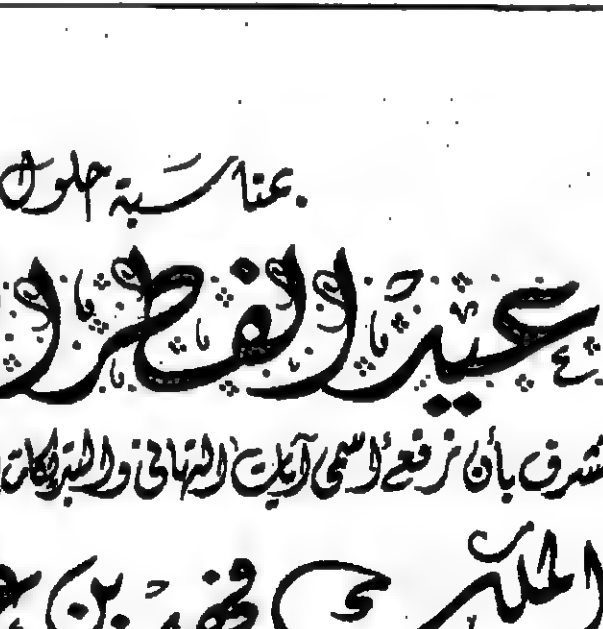 بمناسبة حلول
عيد الفطر ا
نتشرف بأن نرفع أسمى آيات التهاني والتبريكات
الملك فهد بن